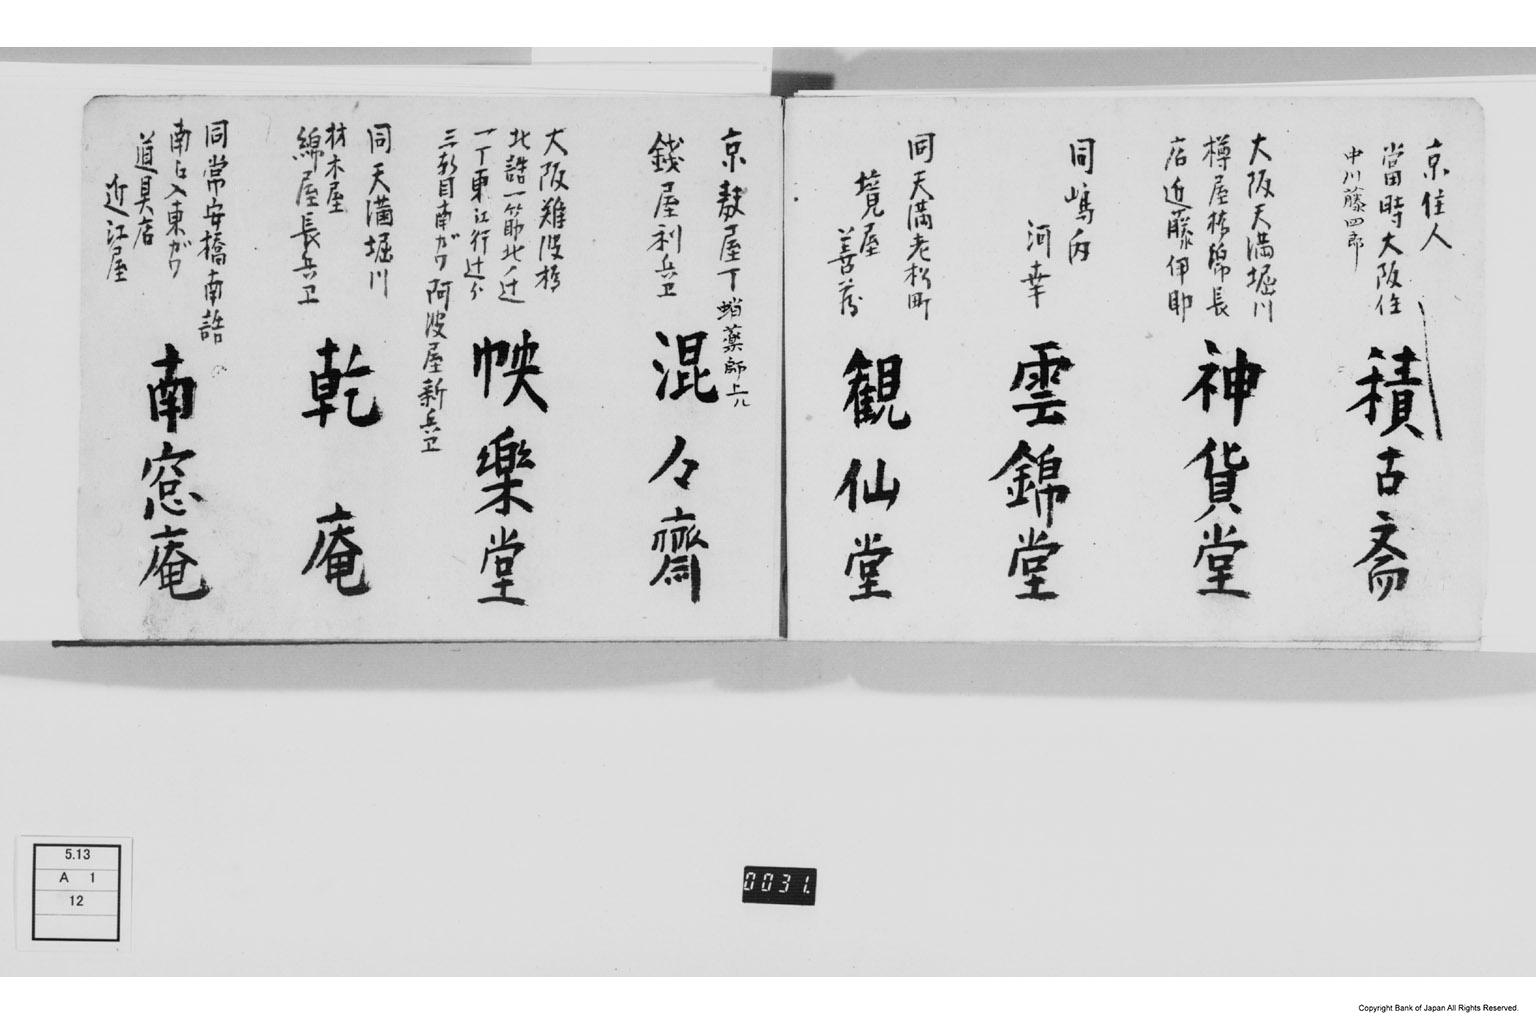 京住人
當時大阪住
中川藤四郎
積古斎
大阪天満堀川
樽屋橋
長
店近藤伊助
神貨堂
同嶋内
河幸
雲錦堂
同天満老松町
境屋
善蔵
観仙堂
京麩屋丁蛸薬師上ル
錢屋利兵卫
混々齋
大阪難波橋
北詰一筋北ノ辻
一丁東江行辻ゟ
三軒目南ガワ阿波屋新兵卫
怏樂堂
同天満堀川
材木屋
綿屋長兵卫
乾庵
同常安橋南詰
南江入東ガワ
道具店
近江屋
南窓庵
5.13
A 1
12
0031.
Copyright Bank of Japan All Rights Reserved.